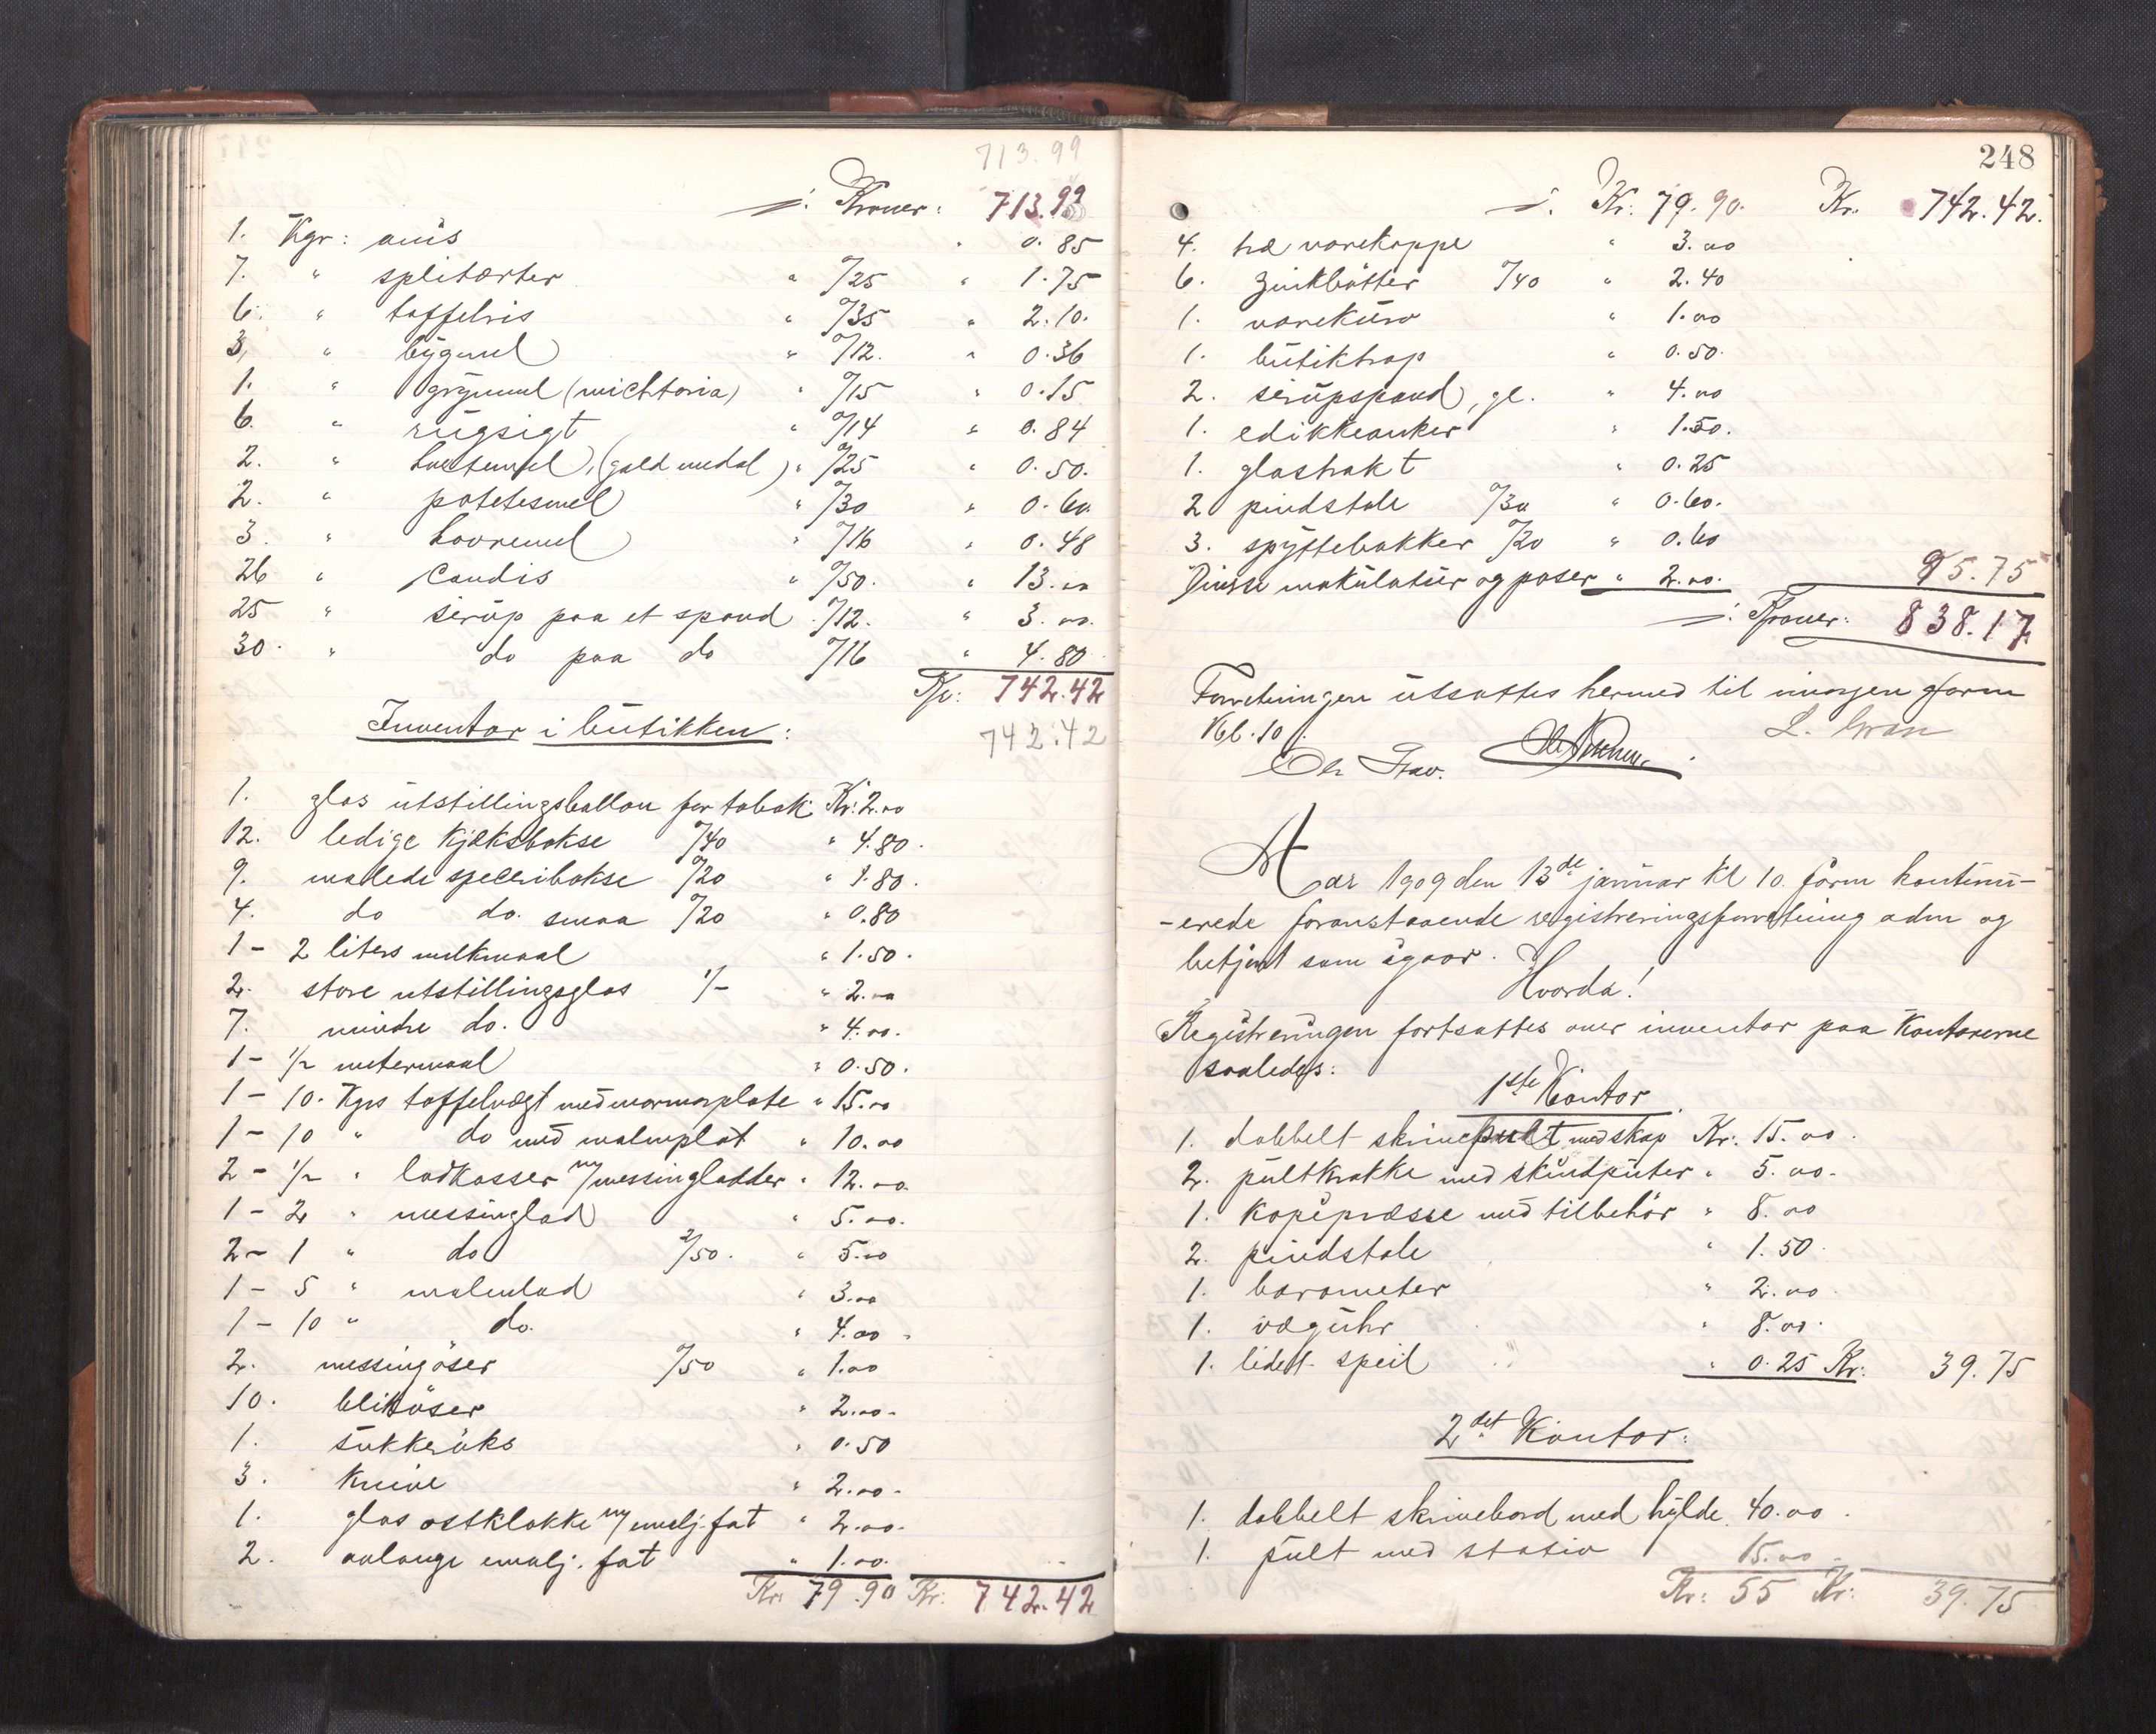 713.99
./. Kroner: 713.99
1. Kgr: anis " 0.85
7. " splitærter " 0/25 " 1.75
6. " taffelris " 0/35 " 2.10.
3, " bygmel " 0/12. " 0.36
1. " grynmel (wichtoria) " 0/15 " 0.15
6. " rugsigt " 0/14 " 0.84
2. " hvetemel, (gald medal) " 0/25 " 0.50.
2. " potetesmel " 0/30 " 0.60
3. " havremel " 0/16 " 0.48
26 " Candis " 0/50. " 13.00
25 " sirup paa et spand 0/12. " 3.00.
30. " do paa do 0/16 " 4.80
Kr: 742.42
Inventar i butikken:
742.42
1. glas utstillingsballon for tobak Kr: 2.00
12. ledige Kjæksbokse 0/40 " 4.80.
9. malede specribokse 0/20 " 1.80.
4. do do. smaa 0/20 " 0.80
1 - 2 liters melkmaal " 1.50.
2. store utstillingsglas 1/- " 2.00
7. mindre do. " 4.00.
1 - 1/2 metermaal " 0.50.
1 - 10. Kgrs taffelvægt med marmorplate " 15.00
1 - 10 " do med malmplat " 10.00
2 - 1/2 " lodkasser m/messinglodder " 12.00.
1 - 2 " messinglod " 5.00.
2 - 1 " do 2/50. " 5.00
1 - 5 " malmlod " 3.00
1 - 10 " do. " 4.00.
2. messingöser 0/50 " 1.00
10. bliköser " 2.00.
1. sukkeröks " 0.50
3. knive " 2.00.
1. glas ostklokke m/ emalj. fat " 2.00.
2. avlange emalj. fat " 1.00.
Kr: 79.90 Kr: 742.42
248
./. Kr: 79.90. Kr. 742.42.
4. træ varekoppe " 3.00
6. Zinkbötter 0/40 " 2.40
1. varekurv " 1.00
1. butiktrap " 0.50.
2. sirupspand, gl. " 4.00
1. edikkeanker " 1.50.
1. glastrakt " 0.25
2 pindstole 0/30 " 0.60.
3. spyttebakker 0/20 " 0.60
Diverse makulatur og poser " 2.00. 95.75
./. Kroner: 838.17
Forretningen utsattes hermed til imorgen form
Kl. 10.
L. Gran
Aar 1909 den 13de januar Kl 10. form kontinu-
-erede foranstaaende registreringsforretning adm og
betjent som igaar. Hvorda!
Registreringen fortsattes over inventar paa Kontorerne
saaledes:
1ste Kontor
1. dobbelt skrivepult med skap Kr: 15.00.
2. pultkrakke med skindputer " 5.00.
1. kopipræsse med tilbehör " 8.00
2. pindstole " 1.50.
1. barometer " 2.00
1. væguhr " 8.00.
1. lidet speil " 0.25 Kr: 39.75
2det Kontor:
1. dobbelt skrivebord med hylde 40.00.
1. pult med stativ 15.00
Kr: 55 Kr: 39.75